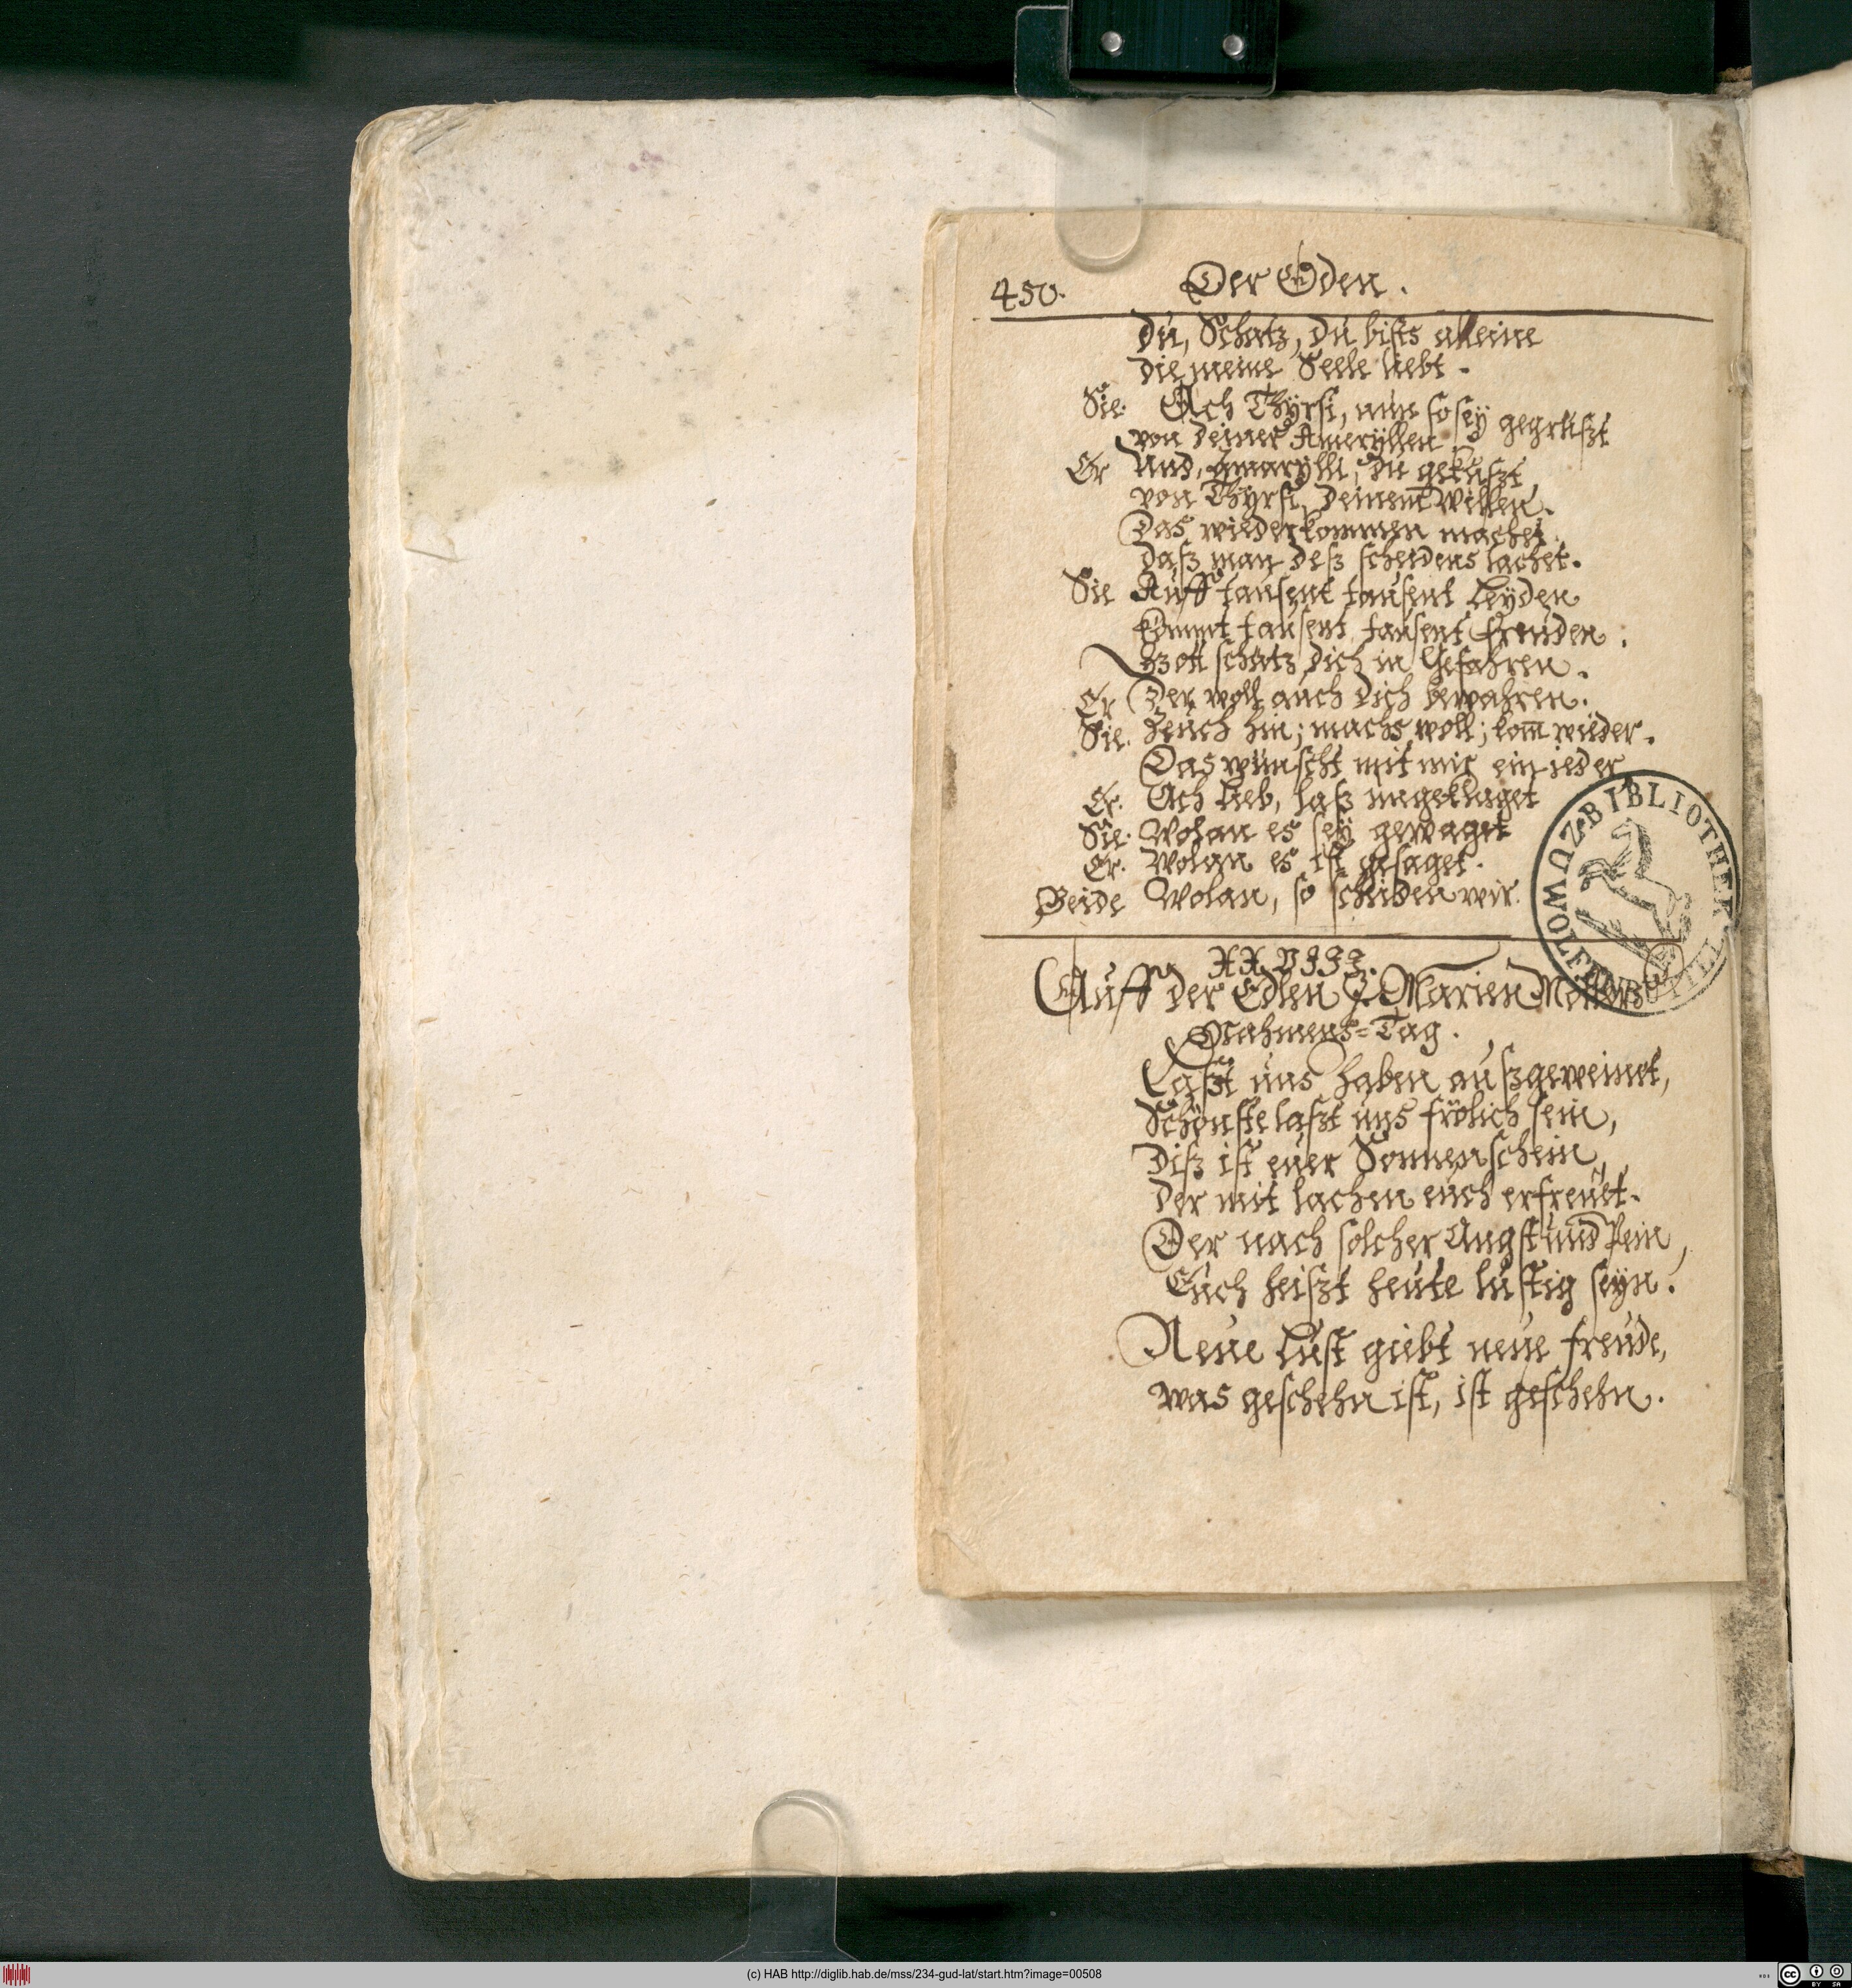 450. Der Oden.
Du, Schatz, du bists alleine
die meine Seele liebt.
Sie. Ach Thyrsi, nun so sey gegrüszt
von deiner Ameryllen
Er Und, Amarylli, du geküszt,
von Thyrsi, deinem Willen.
Das wiederkommen machet.
Dasz man desz scheidens lachet.
Sie Auff tausent tausent Leyden
kommt tausent tausent freuden.
Gott schütz dich in Gefahren.
Er Der woll auch dich bewahren.
Sie. Zeuch hin; machs woll; kom̅ wieder.
Das wünscht mit mir ein ieder
Er. Ach Lieb, lasz ungeklaget
Sie. Wolan es sey gewaget
Er. Wolan es ist gesaget.
Beide Wolan, so scheiden wir.
XXVIII.
Auff der Edlen J. Marien Möllers
Nahmens-Tag.
Laszt uns haben auszgeweinet,
Schönste laszt uns frölich sein,
Disz ist euer Sonnenschein
der mit lachen euch erfreuet.
Der nach solcher Angst und Pein,
Euch heiszt heute lustig seyn.
Neue Lust giebt neue freude,
was geschehn ist, ist geschehn.
BIBLIOTHEK ZU WOLFENBÜTTEL
(c) HAB http://diglib.hab.de/mss/234-gud-lat/start.htm?image=00508
cc BY SA